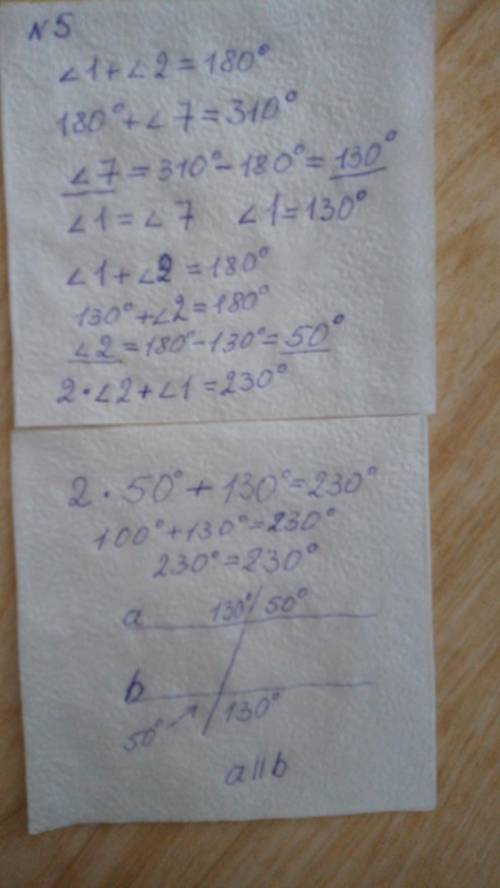 N5
∠1+∠2=180°
180°+∠7=310°
∠7=310°-180°=130°
∠1=∠7 ∠1=130°
∠1+∠2=180°
130°+∠2=180°
∠2=180°-130°=50°
2·∠2+∠1=230°
2·50°+130°=230°
100°+130°=230°
230°=230°
a 130° 50°
b
50° 130°
a||b